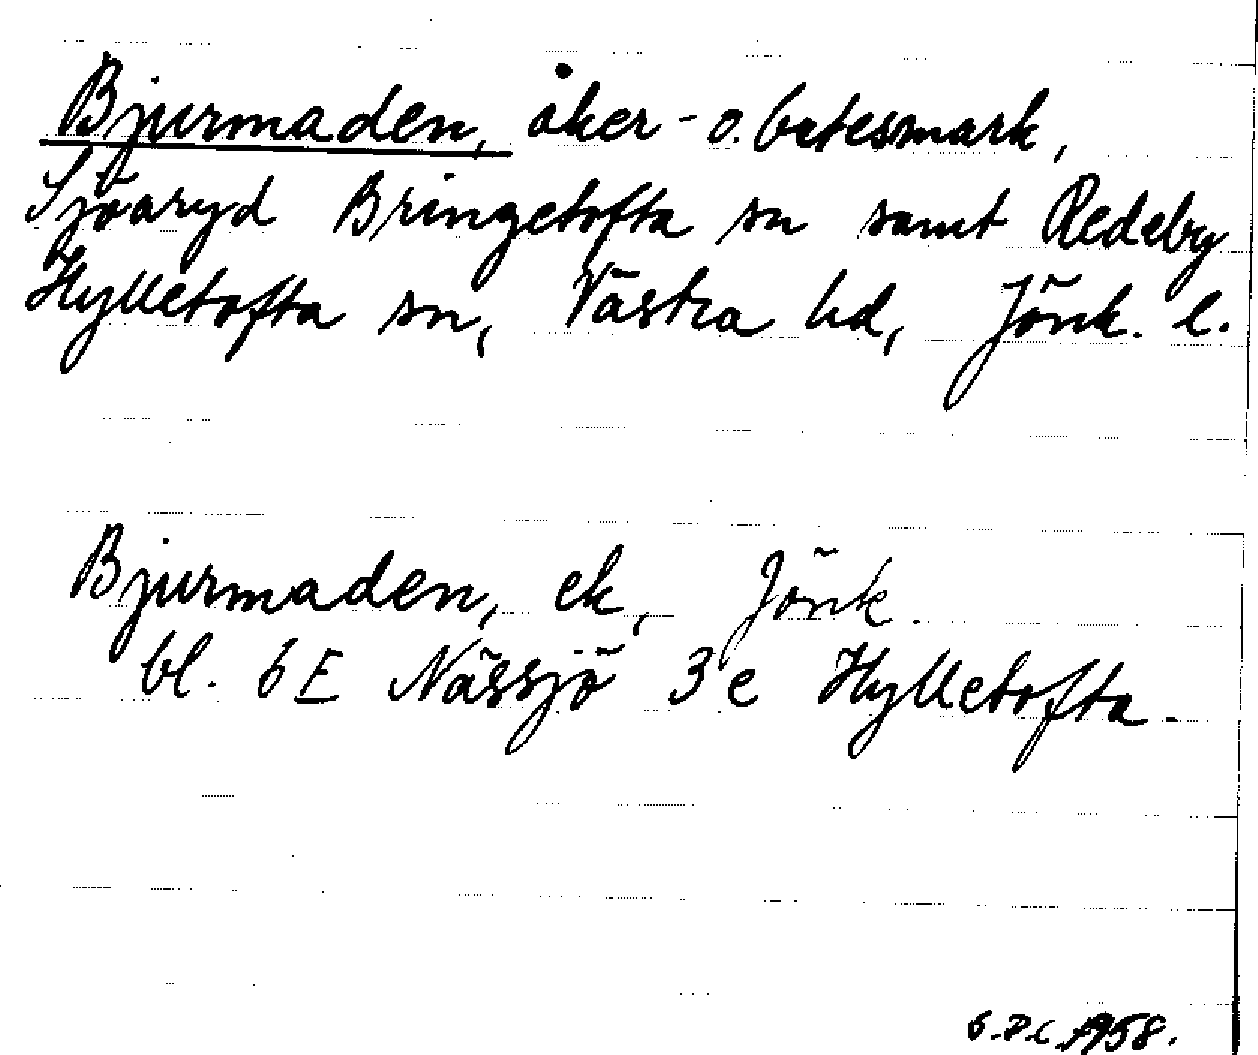 Bjurmaden, åker- o. betesmark,
Sjöaryd Bringetofta sn samt Redeby
Hylletofta sn, Västra hd, Jönk. l.
Bjurmaden, ek, Jönk.
bl. 6E Nässjö 3e Hylletofta.
1958.